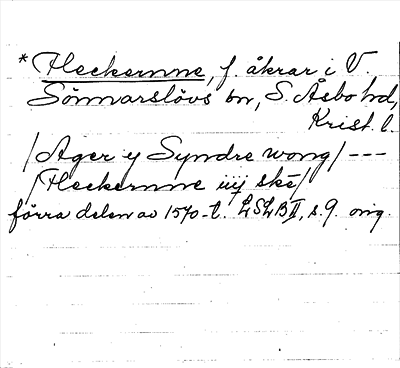 * Fleckernne, f. åkrar i V.
Sönnarslövs bn, S. Åsbo hd,
Krist. l.
/Ager y Syndre wong/ ---
/Fleckernne iiij ske/
förra delen av 1570-t. LSLB II, s. 9. orig.